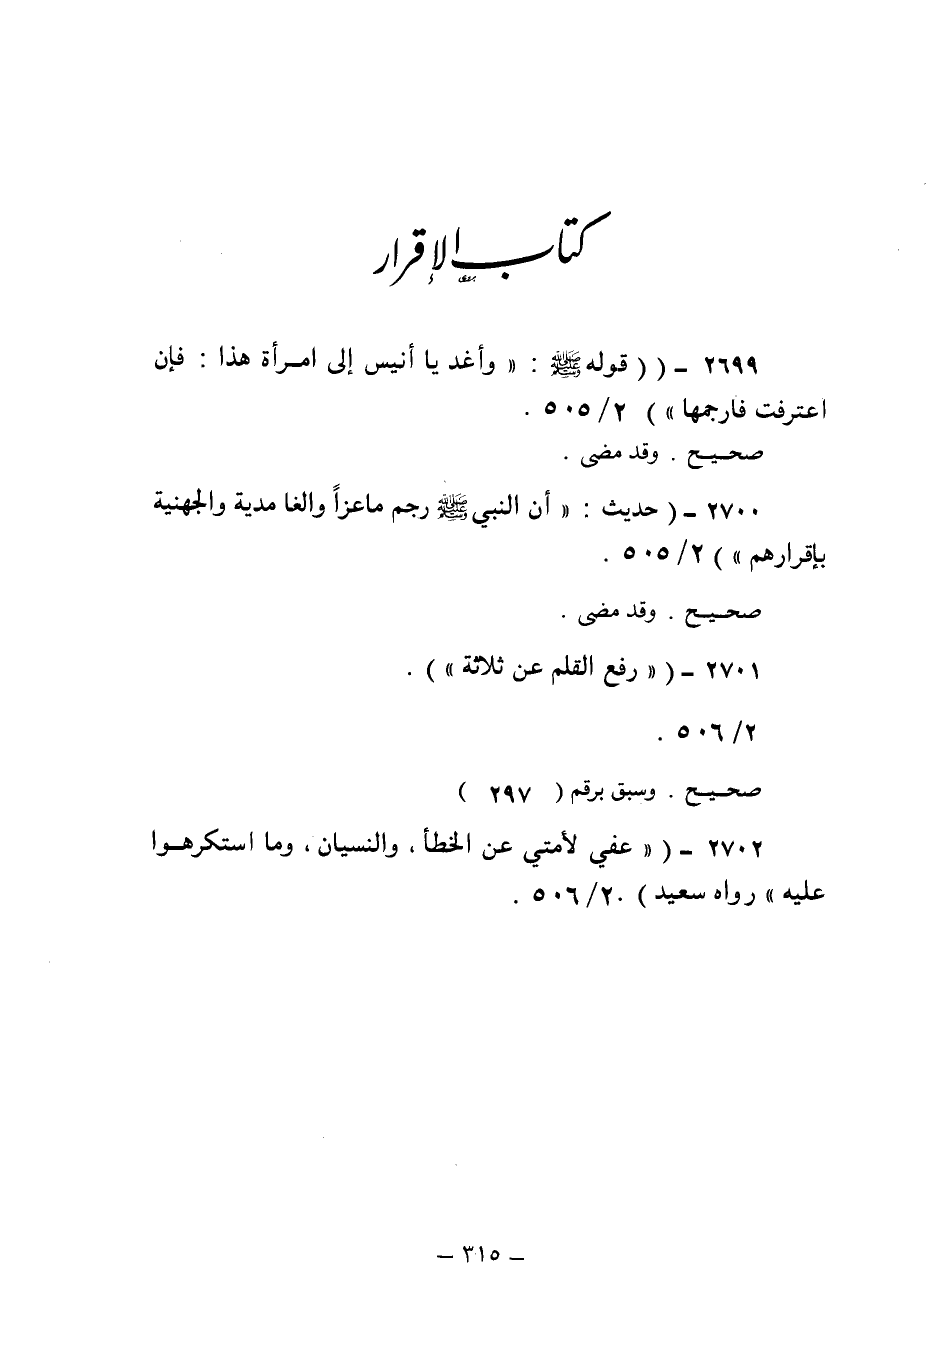 كتاب الإقرار
٢٦٩٩ - ( ( قوله ﷺ : « وأغد يا أنيس إلى امـرأة هذا : فإن
اعترفت فارجمها » ) ٢/ ٥٠٥ .
صحـيـح . وقد مضى .
٢٧٠٠ - ( حديث : « أن النبي ﷺ رجم ماعزاً والغا مدية والجهنية
بإقرارهم » ) ٢/ ٥٠٥ .
صحـيـح . وقد مضى .
٢٧٠١ - ( « رفع القلم عن ثلاثة » ) .
٢/ ٥٠٦ .
صحـيـح . وسبق برقم ( ٢٩٧ )
٢٧٠٢ - ( « عفي لأمتي عن الخطأ ، والنسيان ، وما استكرهـوا
عليه » رواه سعيد ) ٢٠/ ٥٠٦ .
– ٣١٥ –